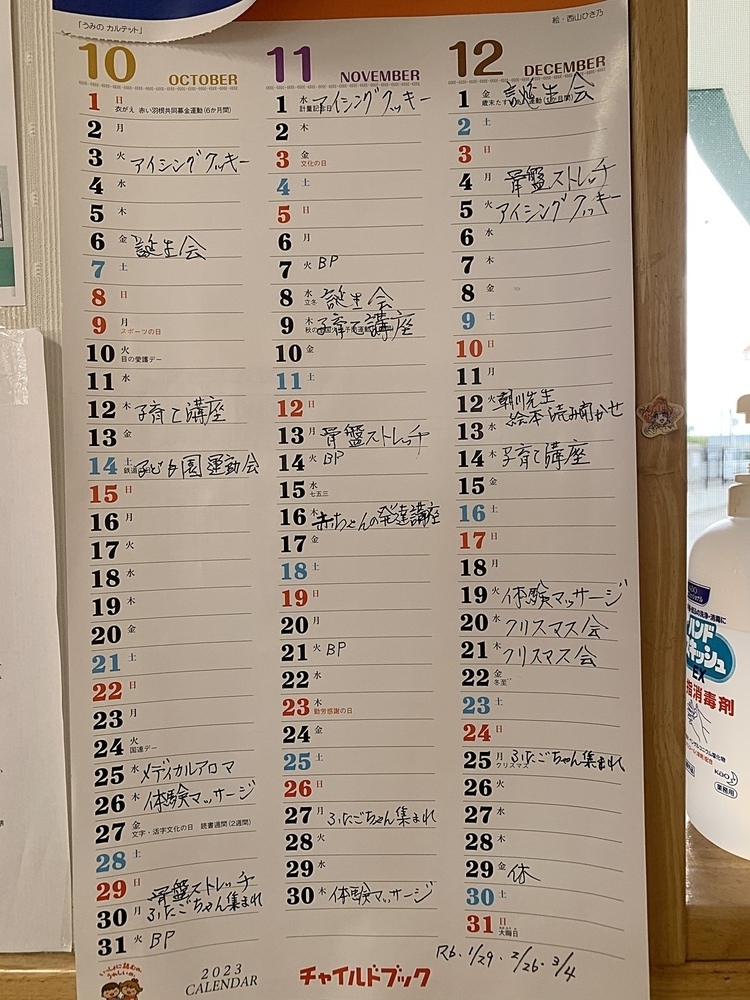 「うみの カルテット」
絵・西山ひさ乃
10 OCTOBER
1 日 衣がえ 赤い羽根共同募金運動(6か月間)
2 月
3 火 アイシングクッキー
4 水
5 木
6 金 誕生会
7 土
8 日
9 月 スポーツの日
10 火 目の愛護デー
11 水
12 木 子育て講座
13 金
14 土 こども園運動会
15 日
16 月
17 火
18 水
19 木
20 金
21 土
22 日
23 月
24 火 国連デー
25 水 メディカルアロマ
26 木 体験マッサージ
27 金 文字・活字文化の日 読書週間(2週間)
28 土
29 日
骨盤ストレッチ
30 月 ふたごちゃん集まれ
31 火 BP
11 NOVEMBER
1 水 計量記念日 アイシングクッキー
2 木
3 金 文化の日
4 土
5 日
6 月
7 火 BP
8 水 立冬 誕生会
9 木 子育て講座
10 金
11 土
12 日
13 月 骨盤ストレッチ
14 火 BP
15 水 七五三
16 木 赤ちゃんの発達講座
17 金
18 土
19 日
20 月
21 火 BP
22 水
23 木 勤労感謝の日
24 金
25 土
26 日
27 月 ふたごちゃん集まれ
28 火
29 水
30 木 体験マッサージ
12 DECEMBER
1 金 誕生会
2 土
3 日
4 月 骨盤ストレッチ
5 火 アイシングクッキー
6 水
7 木
8 金
9 土
10 日
11 月
12 火 朝川先生
絵本読み聞かせ
13 水
14 木 子育て講座
15 金
16 土
17 日
18 月
19 火 体験マッサージ
20 水 クリスマス会
21 木 クリスマス会
22 金 冬至
23 土
24 日
25 月 クリスマス ふたごちゃん集まれ
26 火
27 水
28 木
29 金 休
30 土
31 日 大晦日
R6. 1/29. 2/26. 3/4
いっしょに読むね うれしいね
2023
CALENDAR
チャイルドブック
ハンド
スキッシュ
EX
指消毒剤
Kao
業務用